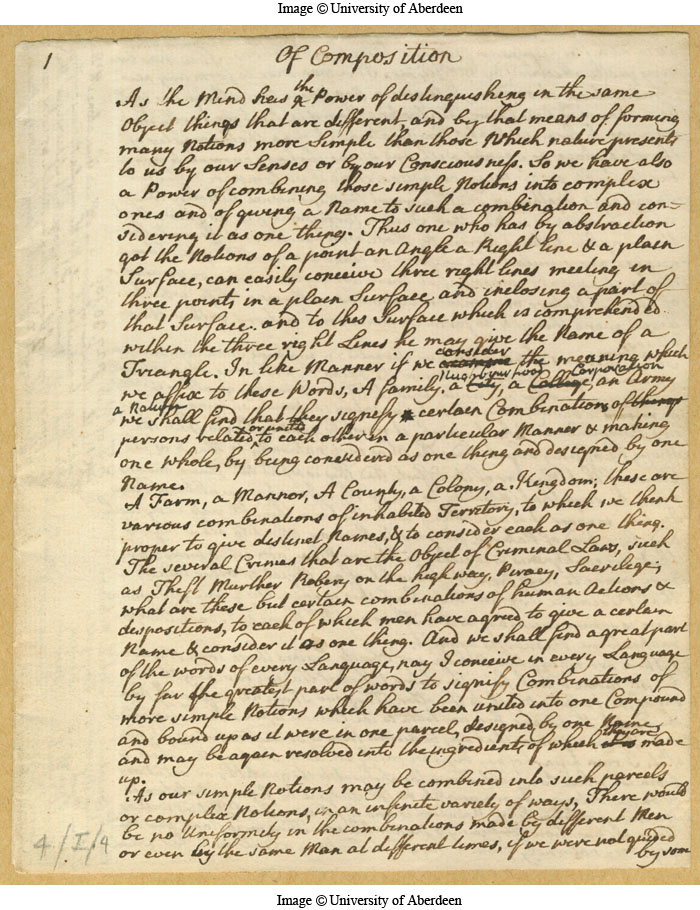 Image © University of Aberdeen
1
Of Composition
As the Mind has the Power of distinguishing in the same
Object things that are different and by that means of forming
many Notions more Simple than those Which nature presents
to us by our Senses or by our Consciousness. So we have also
a Power of combining those simple Notions into complex
ones and of giving a Name to such a combination and con-
sidering it as one thing. Thus one who has by abstraction
got the Notions of a point an Angle a Right line & a plain
Surface, can easily conceive three right lines meeting in
three points in a plain Surface, and inclosing a part of
that Surface. and to this Surface which is comprehended
within the three right Lines he may give the Name of a
Triangle. In like Manner if we consider the meaning which
we affix to these Words, A family. a Neighbourhood City, a Corporation College, an Army
a Nation we shall find that they signify certain Combinations of things
persons related, or united to each other in a particular Manner & making
one whole, by being considered as one thing and designed by one
Name.
A Farm, a Mannor, A County, a Colony, a Kingdom; these are
various combinations of inhabited Territory, to which we think
proper to give distinct Names, & to consider each as one thing.
The several Crimes that are the Object of Criminal Laws, such
as Theft Murther Robery on the high way, Piracy, Sacrilege;
what are these but certain combinations of human Actions &
dispositions, to each of which men have agreed to give a certain
Name & consider it as one thing. And we shall find a great part
of the words of every Language, nay I conceive in every Language
by far the greatest part of words to signify Combinations of
more simple Notions which have been united into one Compound
and bound up as it were in one parcel, designed by one Name,
and may be again resolved into the ingredients of which they are made
up.
As our simple Notions may be combined into such parcels
or complex Notions, in an infinite variety of ways, There would
be no Uniformity in the combinations made by different Men
or even by the same Man at different times, if we were not guided
by some
4/I/4
Image © University of Aberdeen